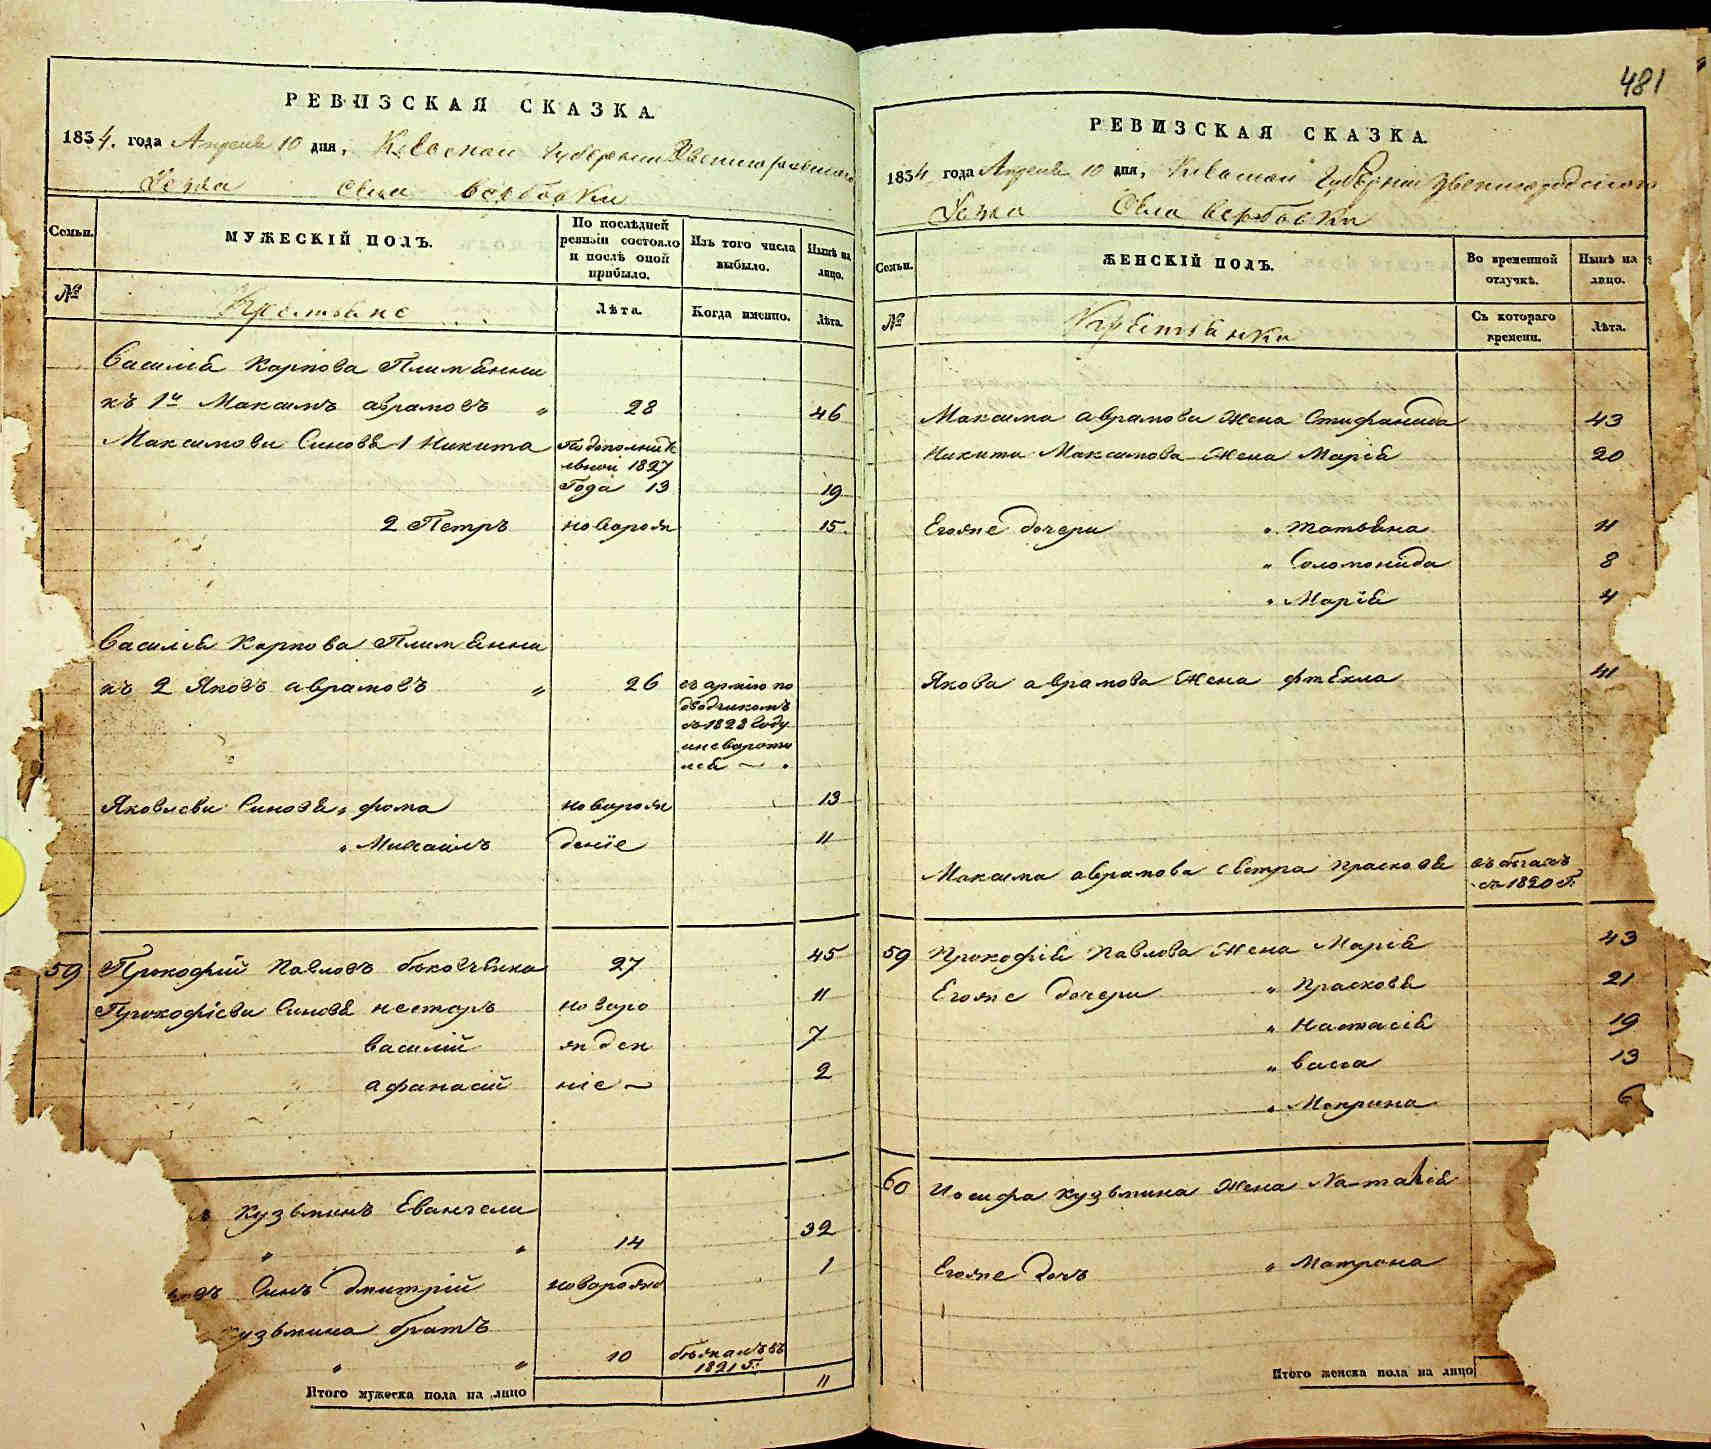 481
РЕВИЗСКАЯ СКАЗКА.
1834. года Апреля 10 дня, Киевской Губернии Звенигородского
Уезда Села Вербовки
Семьи.
МУЖЕСКІЙ ПОЛЪ.
По послѣдней ревизіи состояло и послѣ оной прибыло.
Изъ того числа выбыло.
Нынѣ на лицо.
№
Крестьяне
Лѣта.
Когда именно.
Лѣта.
Василія Карпова Племянни
къ 1й Максимъ аврамовъ " 28 46
Максимови Синовя 1 Никита По дополните
льной 1827
Года 13 19
2 Петръ новарож 15
Василія Карпова Племянни
къ 2 Яковъ аврамовъ " 26 въ армію по
дводчикомъ
въ 1828 Году
и не вароти
лся
Яковлеви Синовя " фома новарож 13
" Михаилъ деніе 11
59 Прокофий Павловъ 27 45
Прокофіеви Синовя нестаръ новаро 11
Василий жден 7
афанасий ніе 2
Кузьминъ Евангели
" " 14 32
Синъ Дмитрій новарожд 1
Кузьмина братъ
" " 10 бежалъ въ
1821 Г.
Итого мужеска пола на лицо 11
РЕВИЗСКАЯ СКАЗКА.
1834 года Апреля 10 дня, Киевской Губерніи Звенигородского
Уезда Села Вербовки
Семьи.
ЖЕНСКІЙ ПОЛЪ.
Во временной отлучкѣ.
Нынѣ на лицо.
№
Крестьянки
Съ котораго времени.
Лѣта.
Максима аврамова Жена Стифанида 43
Никити Максимова Жена Марія 20
Егоже дочери " татьяна 11
" Соломонида 8
" Марія 4
Якова аврамова Жена 41
Максима аврамова сестра Прасковя въ бегахъ
съ 1820 Г.
59 Прокофія Павлова Жена Марія 43
Егоже дочери " Прасковя 21
" Настасія 19
" Васса 13
" Макрина 6
60 Иосифа Кузьмина Жена Наталія
Егоже дочъ " Матрона
Итого женска пола на лицо